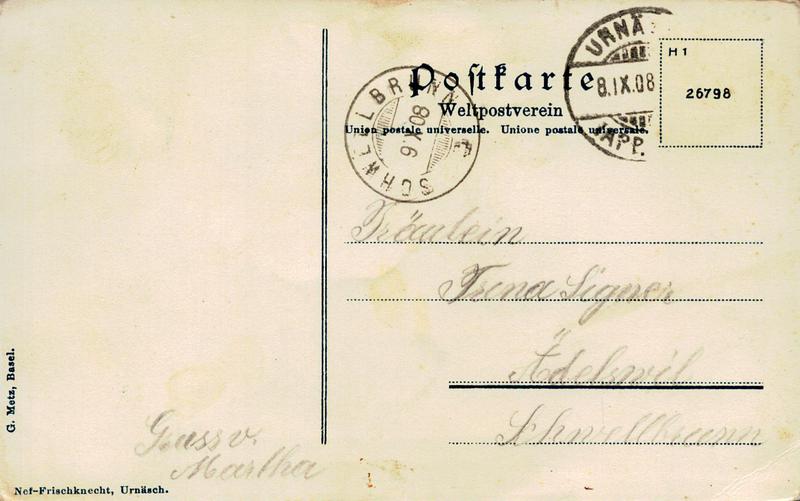 Postkarte
Weltpostverein
Union postale universelle. Unione postale universale.
URNÄ
8.IX.08
APP.
H 1
26798
SCHWELLBRUNN
Fräulein
Trena Signer
Ädelswil
Schwellbrunn
Gruss v.
Martha
G. Metz, Basel.
Nef-Frischknecht, Urnäsch.